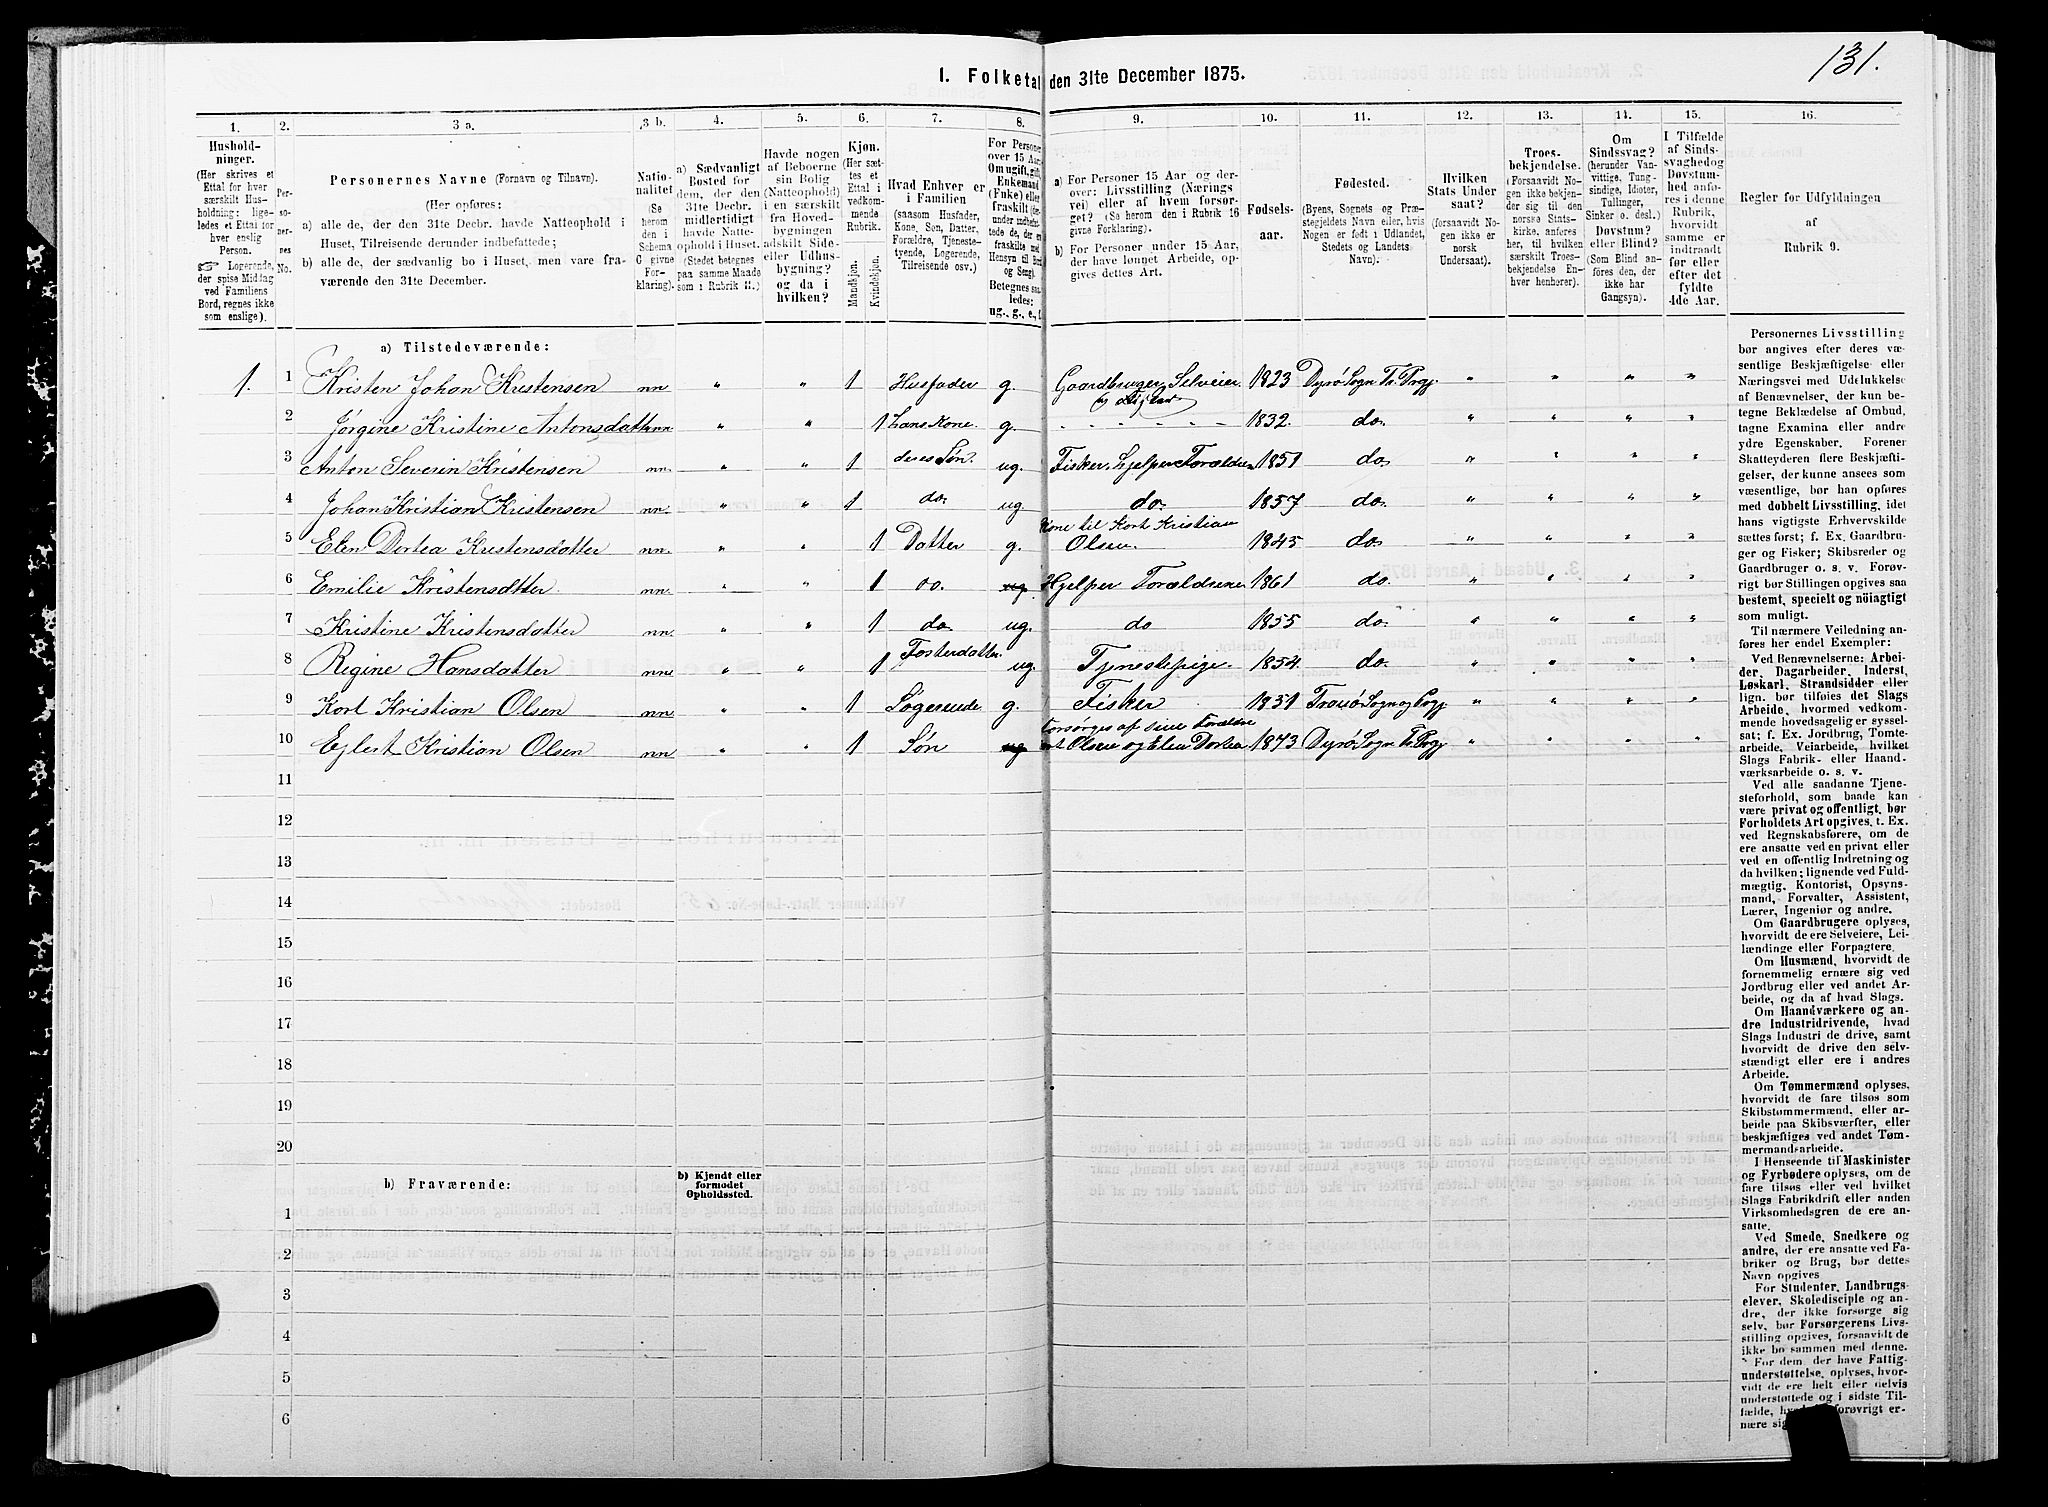 131.
1. Folketal den 31te December 1875.
1. 2. 3 a. 3 b. 4. 5. 6. 7. 8. 9. 10. 11. 12. 13. 14. 15. 16.
Hushold-
ninger.
(Her skrives et
Ettal for hver
særskilt Hus-
holdning; lige-
ledes et Ettal for
hver enslig
Person.
☞ Logerende,
der spise Middag
ved Familiens
Bord, regnes ikke
som enslige).
Per-
so-
ner-
nes
No.
Personernes Navne (Fornavn og Tilnavn).
(Her opføres:
a) alle de, der den 31te Decbr. havde Natteophold i
Huset, Tilreisende derunder indbefattede;
b) alle de, der sædvanlig bo i Huset, men vare fra-
værende den 31te December.
Natio-
nalitet
(Se
herom
den i
Schema
G givne
For-
klaring).
a) Sædvanligt
Bosted for
dem, der den
31te Decbr.
midlertidigt
havde Natte-
ophold i Huset.
(Stedet betegnes
paa samme Maade
som i Rubrik 11.)
Havde nogen
af Beboerne
sin Bolig
(Natteophold)
i en særskilt
fra Hoved-
bygningen
adskilt Side-
eller Udhus-
bygning?
og da i
hvilken?
Kjøn.
(Her sæt-
tes et
Ettal i
vedkom-
mende
Rubrik.
Mandkjøn.
Kvindekjøn.
Hvad Enhver er
i Familien
(saasom Husfader,
Kone, Søn, Datter,
Forældre, Tjeneste-
tyende, Logerende,
Tilreisende osv.)
For Personer
over 15 Aar:
Om ugift, gift,
Enkemand
(Enke) eller
fraskilt
Betegnes saa-
ledes:
ug., g., e., f.
a) For Personer 15 Aar og der-
over: Livsstilling (Nærings
vei) eller af hvem forsør-
get? (Se herom den i Rubrik 16
givne Forklaring).
b) For Personer under 15 Aar,
der have lønnet Arbeide, op-
gives dettes Art.
Fødsels-
aar.
Fødested.
(Byens, Sognets og Præ-
stegjeldets Navn eller, hvis
Nogen er født i Udlandet,
Stedets og Landets
Navn).
Hvilken
Stats Under
saat?
(forsaavidt No-
gen ikke er
norsk
Undersaat).
Troes-
bekjendelse.
(Forsaavidt No-
gen ikke bekjen-
der sig til den
norske Stats-
kirke, anføres
her, til hvilken
særskilt Troes-
bekjendelse En-
hver henhører).
Om
Sindssvag?
(herunder Van-
vittige, Tung-
sindige, Idioter,
Tullinger,
Sinker o. desl.)
Døvstum?
eller Blind?
(Som Blind an-
føres den, der
ikke har
Gangsyn).
I Tilfælde
af Sinds-
svaghed og
Døvstum-
hed anfø-
res i denne
Rubrik,
hvorvidt
samme er
indtraadt
før eller
efter det
fyldte
4de Aar.
Regler for Udfyldningen
af
Rubrik 9.
a) Tilstedeværende:
1. 1 Kristen Johan Kristensen nn. " " 1 Husfader g. Gaardbruger Selveier 1823 Dyrø Sogn Tr. Prgj. " " " "
2 Jørgine Kristine Antonsdatter nn " " 1 hans Kone g. 1832. do. " " " "
3 Anton Severin Kristensen nn. " " 1 deres Søn. ug. Fisker, hjelper Forældren 1851 do " " " "
4 Johan Kristian Kristensen nn. " " 1 do. ug. do. 1857 do. " " " "
5 Elen Dortea Kristensdatter nn. " " 1 Datter g. Kone til Kort Kristian
Olsen. 1845 do. " " " "
6 Emilie Kristensdatter. nn. " " 1 do. ug. Hjelper Forældrene 1861 do. " " " "
7 Kristine Kristensdatter nn. " " 1 do. ug. do 1855 do. " " " "
8 Regine Hansdatter nn. " " 1 Fosterdatter. ug. Tjenestepige. 1854. do. " " " "
9 Kort Kristian Olsen nn. " " 1 Logerende g. Fisker 1851 Tranø Sogn og Prgj. " " " "
10 Eglert Kristian Olsen nn. " " 1 Søn ug Forsørges af sine Forældre
Olsen og Elen Dortea 1873 Dyrø Sogn Tr. Prgj " " " "
11
12
13
14
15
16
17
18
19
20
b) Fraværende:
b) Kjendt eller
formodet
Opholdssted.
1
2
3
4
5
6
Personernes Livsstilling
bør angives efter deres væ-
sentlige Beskjæftigelse eller
Næringsvei med Udelukkelse
af Benævnelser, der kun be-
tegne Beklædelse af Ombud,
tagne Examina eller andre
ydre Egenskaber. Forener
Skatteyderen flere Beskjæfti-
gelser, der kunne ansees som
væsentlige, bør han opføres
med dobbelt Livsstilling, idet
hans vigtigste Erhvervskilde
sættes først; f. Ex. Gaardbru-
ger og Fisker; Skibsreder og
Gaardbruger o. s. v. Forøv-
rigt bør Stillingen opgives saa
bestemt, specielt og nöiagtigt
som muligt.
Til nærmere Veiledning an-
føres her endel Exempler:
Ved Benævnelserne: Arbei-
der, Dagarbeider, Inderst,
Løskarl, Strandsidder eller
lign. bør tilføies det Slags
Arbeide, hvormed vedkom-
mende hovedsagelig er syssel-
sat; f. Ex. Jordbrug, Tomte-
arbeide, Veiarbeide, hvilket
Slags Fabrik- eller Haand-
værksarbeide o. s. v.
Ved alle saadanne Tjene-
steforhold, som baade kan
være privat og offentligt, bør
Forholdets Art opgives, t. Ex.
ved Regnskabsførere, om de
ere ansatte ved en privat eller
ved en offentlig Indretning og
da hvilken; lignende ved Fuld-
mægtig, Kontorist, Opsyns-
mand, Forvalter, Assistent,
Lærer, Ingeniør og andre.
Om Gaardbrugere oplyses,
hvorvidt de ere Selveiere, Lei-
lændinge eller Forpagtere.
Om Husmænd, hvorvidt de
fornemmelig ernære sig ved
Jordbrug eller ved andet Ar-
beide, og da af hvad Slags.
Om Haandværkere og an-
dre Industridrivende, hvad
Slags Industri de drive, samt
hvorvidt de drive den selv-
stændigt eller ere i andres
Arbeide.
Om Tømmermænd oplyses,
hvorvidt de fare tilsøs som
Skibstømmermænd, eller ar-
beide paa Skibsværfter, eller
beskjæftiges ved andet Tøm-
mermandsarbeide.
I Henseende til Maskinister
og Fyrbødere oplyses, om de
fare tilsøs eller ved hvilket
Slags Fabrikdrift eller anden
Virksomhedsgren de ere an-
satte.
Ved Smede, Snedkere og
andre, der ere ansatte ved Fa-
briker og Brug, bør dettes
Navn opgives
For Studenter, Landbrugs-
elever, Skoledisciple og an-
dre, der ikke forsørge sig
selv, bør Forsørgerens Livs-
stilling opgives, forsaavidt de
ikke bo sammen med denne.
For dem, der have Fattig-
understøttelse, oplyses, hvor-
vidt de ere helt eller delvis
understøttede og i sidste Til-
fælde, forøvrigt er-
nære sig